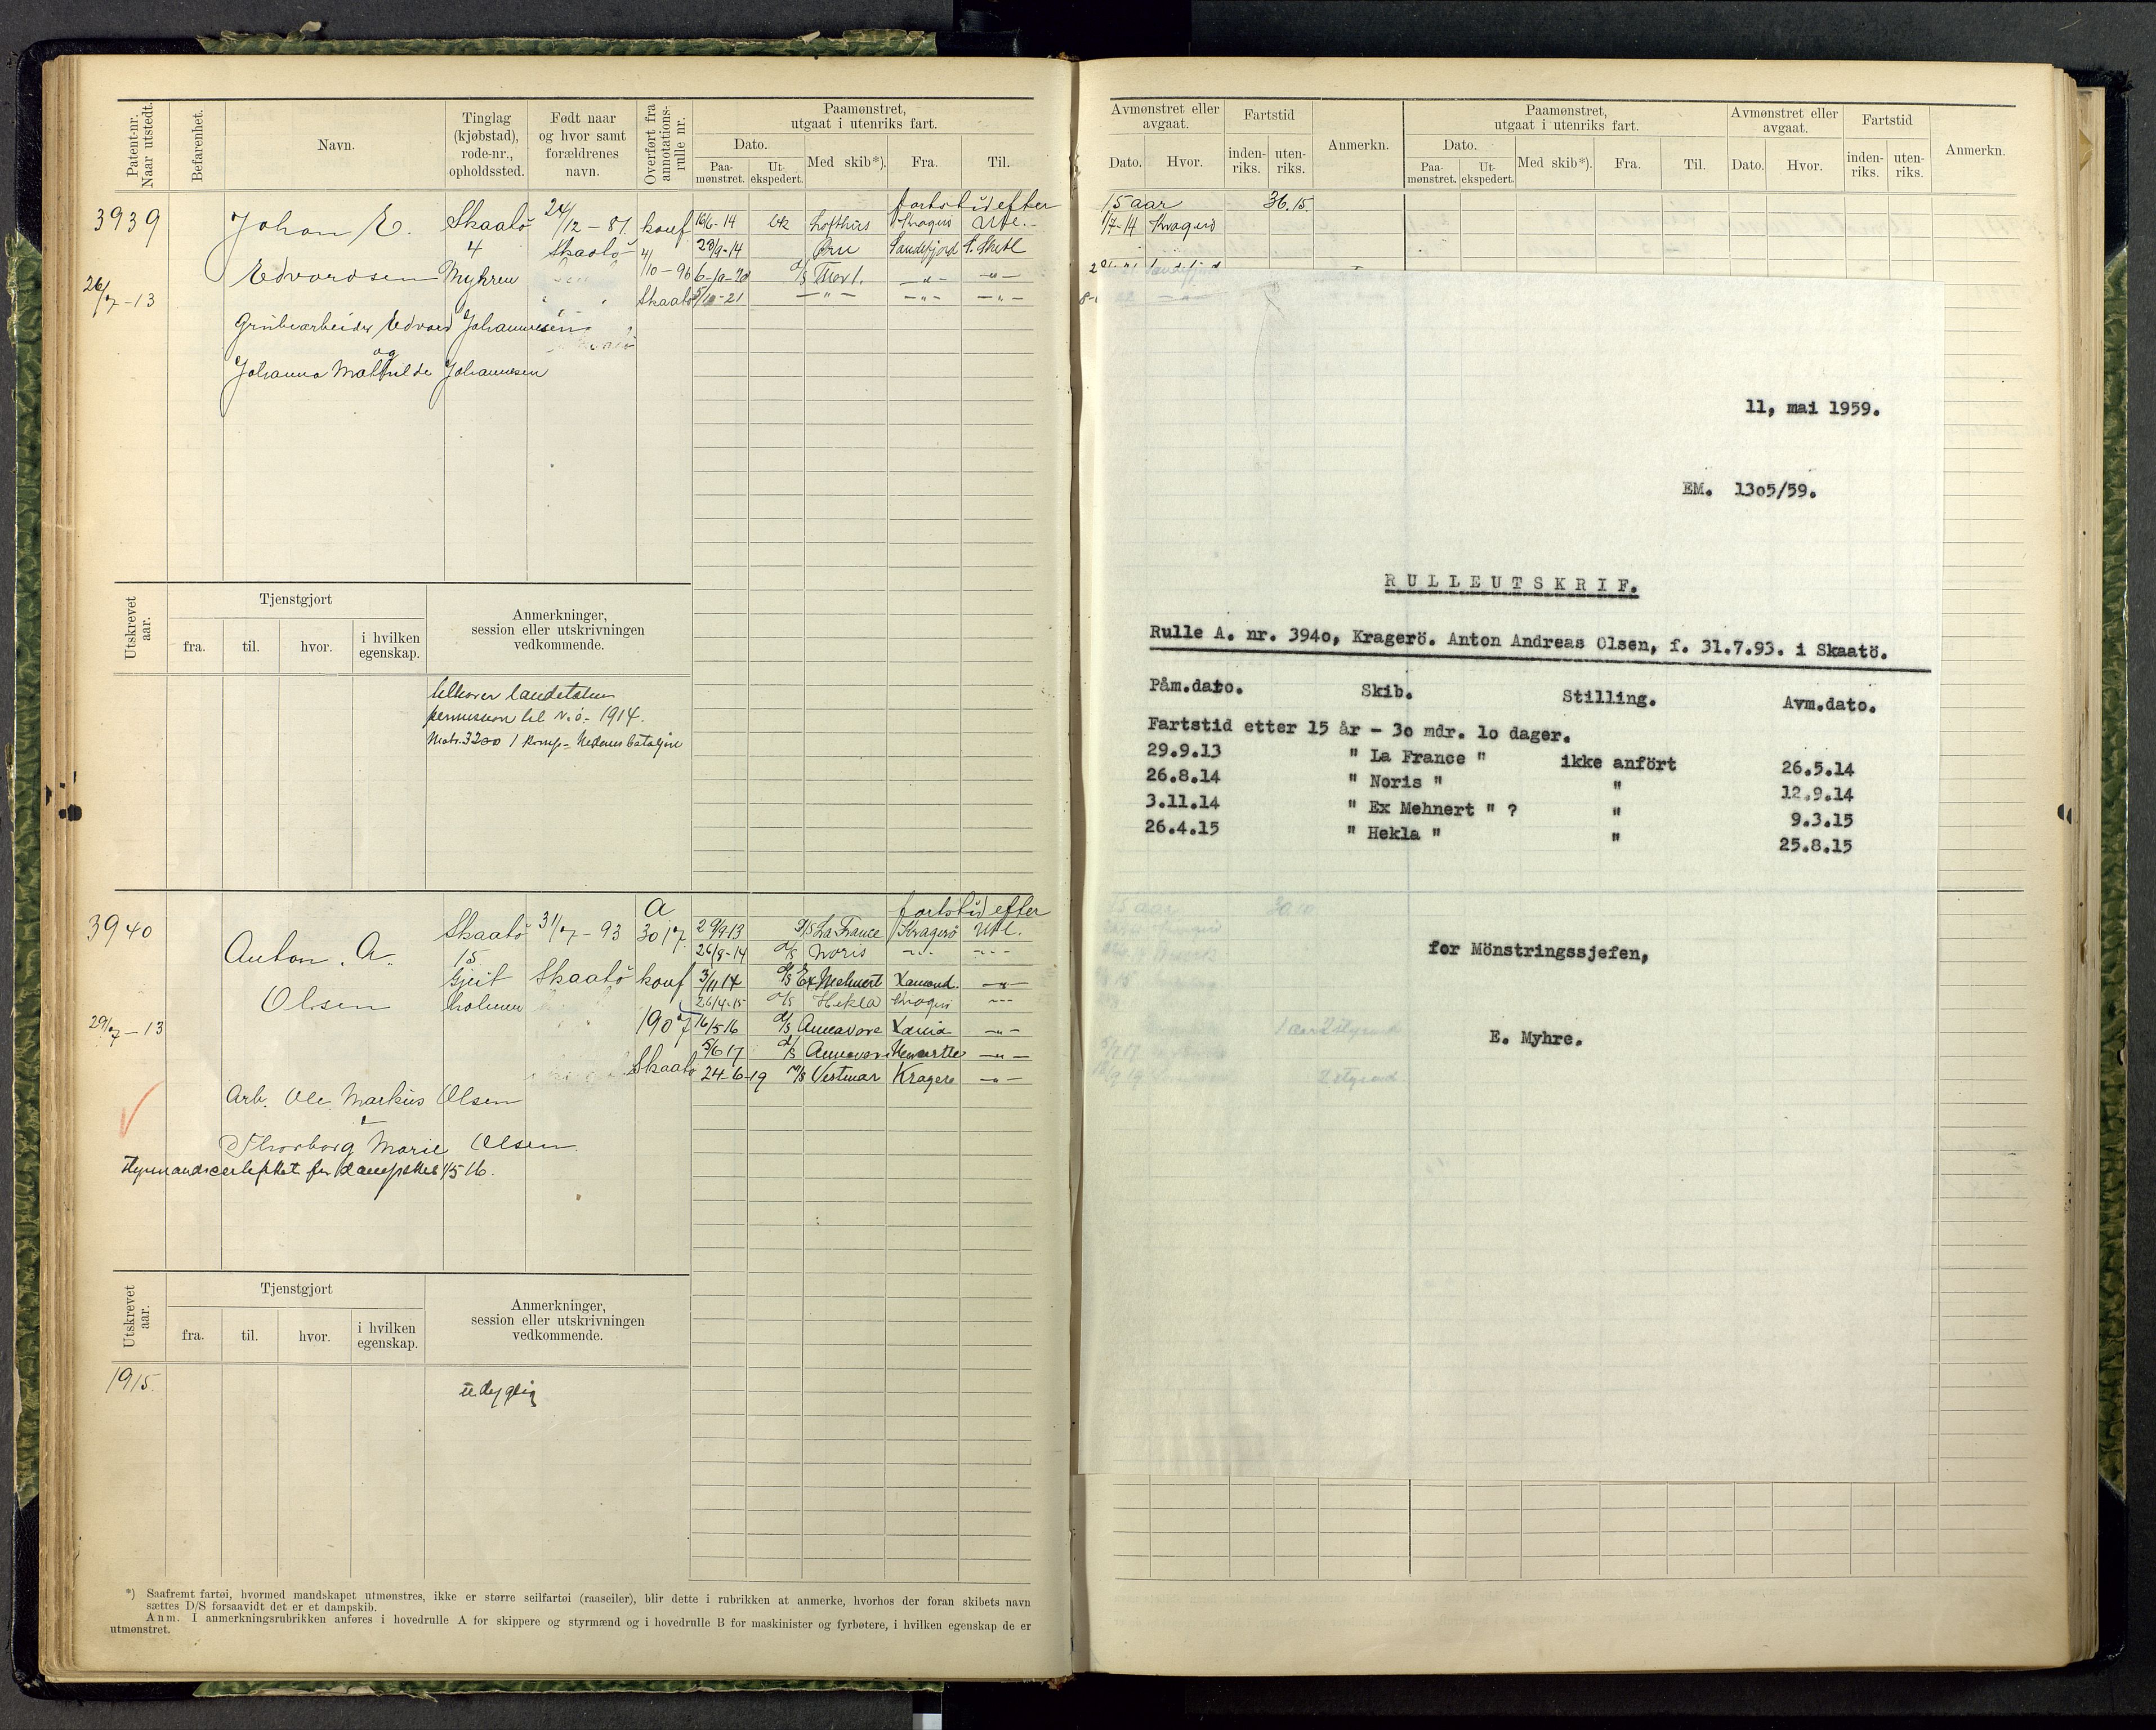 Patent-nr.
Naar utstedt.
Befarenhet.
Navn.
Tinglag
(kjøbstad),
rode-nr.,
opholdssted.
Født naar
og hvor samt
forældrenes
navn.
Overført fra
annotations-
rulle nr.
Paamønstret,
utgaat i utenriks fart.
Dato.
Paa-
mønstret.
Ut-
ekspedert.
Med skib*).
Fra.
Til.
fartstid efter
3939
26/7-13
Johan E.
Edvardsen
Skaatö
4
Myhren
24/12-87
Skaatö
konf
4/10-96
Skaatö
16/6-14 Lofthus Kragerö Utl.
23/9-14 Ørn Sandefjord S. Shetl
6-10-20 Thor I. -"- -"-
5/10-21 -"- -"- -"-
Grubearbeider Edvard Johannesen
og
Johanna Mathilde Johannesen
Utskrevet
aar.
Tjenstgjort
fra.
til.
hvor.
i hvilken
egenskap.
Anmerkninger,
session eller utskrivningen
vedkommende.
tilhører landetaten
permission til v.ö. 1914.
Matr. 3200 1 komp.
3940
29/7-13
Anton. A.
Olsen
Skaatö
15
Gjeit
holmen
31/7-93
Skaatö
A
3017
konf
1907
Skaatö
fartstid efter
29/9 13 La France Kragerö Utl.
26/8-14 D/S Noris -"- -"-
3/11 14 D/S Ex Mehnert -"-
26/4-15 D/S Hekla Kragerö -"-
16/5 16 D/S -"-
5/6 17 D/S -"-
24-6-19 M/S Vestmar Kragerö -"-
Arb. Ole Markus Olsen
Thorborg Marie Olsen
Utskrevet
aar.
Tjenstgjort
fra.
til.
hvor.
i hvilken
egenskap.
Anmerkninger,
session eller utskrivningen
vedkommende.
1915.
udygtig
*) Saafremt fartøi, hvormed mandskapet utmønstres, ikke er større seilfartøi (raaseiler), blir dette i rubrikken at anmerke, hvorhos der foran skibets navn
sættes D/S forsaavidt det er et dampskib.
Anm. I anmerkningsrubrikken anføres i hovedrulle A for skippere og styrmænd og i hovedrulle B for maskinister og fyrbøtere, i hvilken egenskap de er
utmønstret.
Avmønstret eller
avgaat.
Dato.
Hvor.
Fartstid
inden-
riks.
uten-
riks.
Anmerkn.
Paamønstret,
utgaat i utenriks fart.
Dato.
Paa-
mønstret.
Ut-
ekspedert.
Med skib*).
Fra.
Til.
Avmønstret eller
avgaat.
Dato.
Hvor.
Fartstid
inden-
riks.
uten-
riks.
Anmerkn.
15 aar 36.15.
1/7-14 Kragerö
11, mai 1959.
EM. 1305/59.
RULLEUTSKRIF.
Rulle A. nr. 3940, Kragerö. Anton Andreas Olsen, f. 31.7.93. i Skaatö.
Påm.dato. Skib. Stilling. Avm.dato.
Fartstid etter 15 år - 30 mdr. 10 dager.
29.9.13 " La France " ikke anfört 26.5.14
26.8.14 " Noris " " 12.9.14
3.11.14 " Ex Mehnert " ? " 9.3.15
26.4.15 " Hekla " " 25.8.15
for Mönstringssjefen,
E. Myhre.